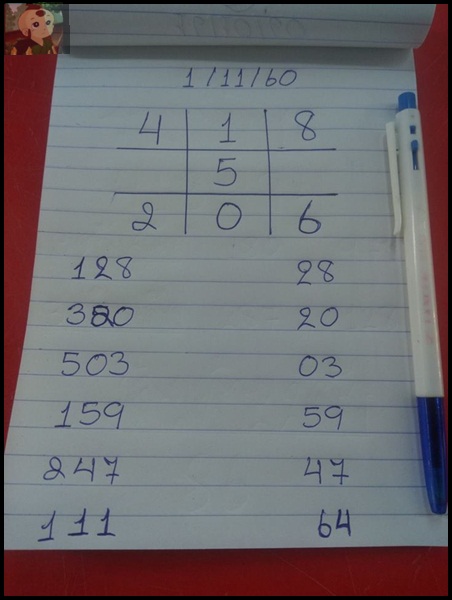 1/11/60
4 1 8
5
2 0 6
128 28
320 20
503 03
159 59
247 47
111 64